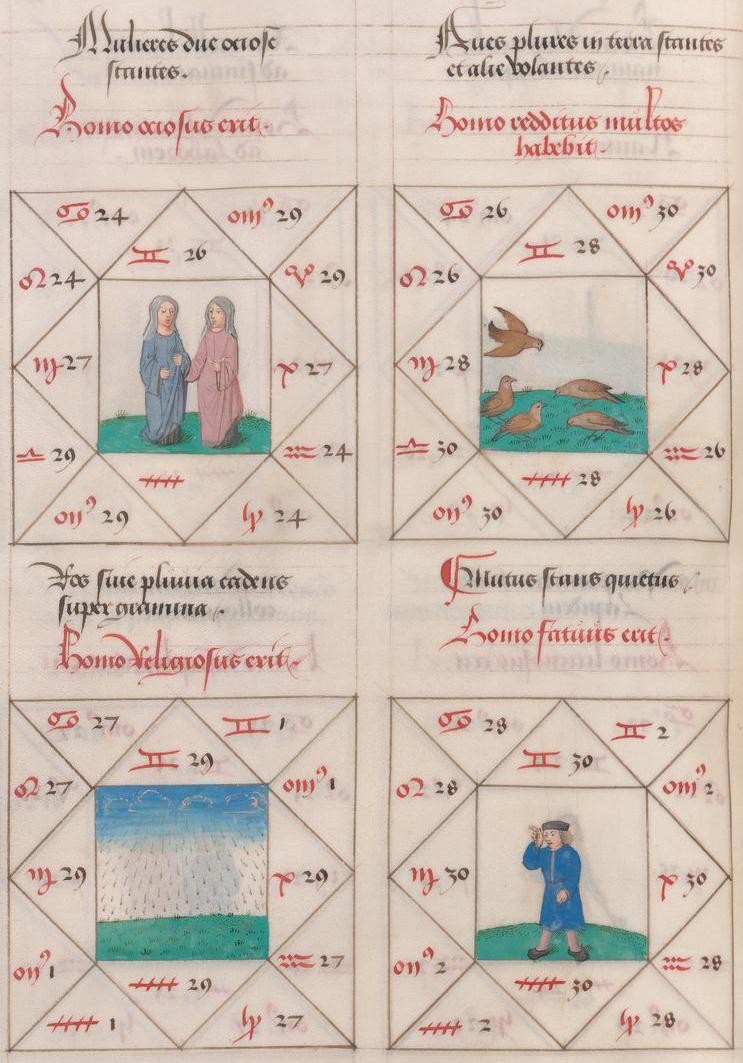 Mulieres due ociose
stantes.
Homo ociosus erit.
♋ 24
♊ 26
29
♌ 24
♉ 29
♍ 27
♓ 27
♎ 29
♒ 24
29
♑ 24
Aues plures in terra stantes
et alie volantes.
Homo redditus multos
habebit.
♋ 26
♊ 28
30
♌ 26
♉ 30
♍ 28
♓ 28
♎ 30
♒ 26
♐ 28
30
♑ 26
Ros sine pluuia cadens
super gramina.
Homo Religiosus erit.
♋ 27
♊ 29
♊ 1
♌ 27
1
♍ 29
♓ 29
1
♒ 27
♐ 29
♐ 1
♑ 27
Mutus stans quietus.
Homo fatuus erit.
♋ 28
♊ 30
♊ 2
♌ 28
2
♍ 30
♓ 30
2
♒ 28
♐ 30
♐ 2
♑ 28